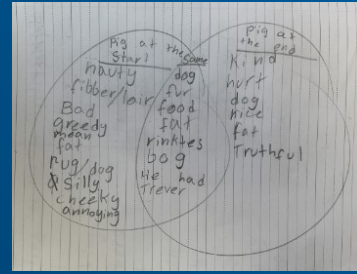 Pig at the
Start
nauty
fibber/liar
Bad
greedy
mean
fat
Pug/dog
Silly
cheeky
annoying
Same
dog
fur
food
fat
rinktes
bog
He had
Trever
Pig at
the end
kind
hurt
dog
nice
fat
Truthful